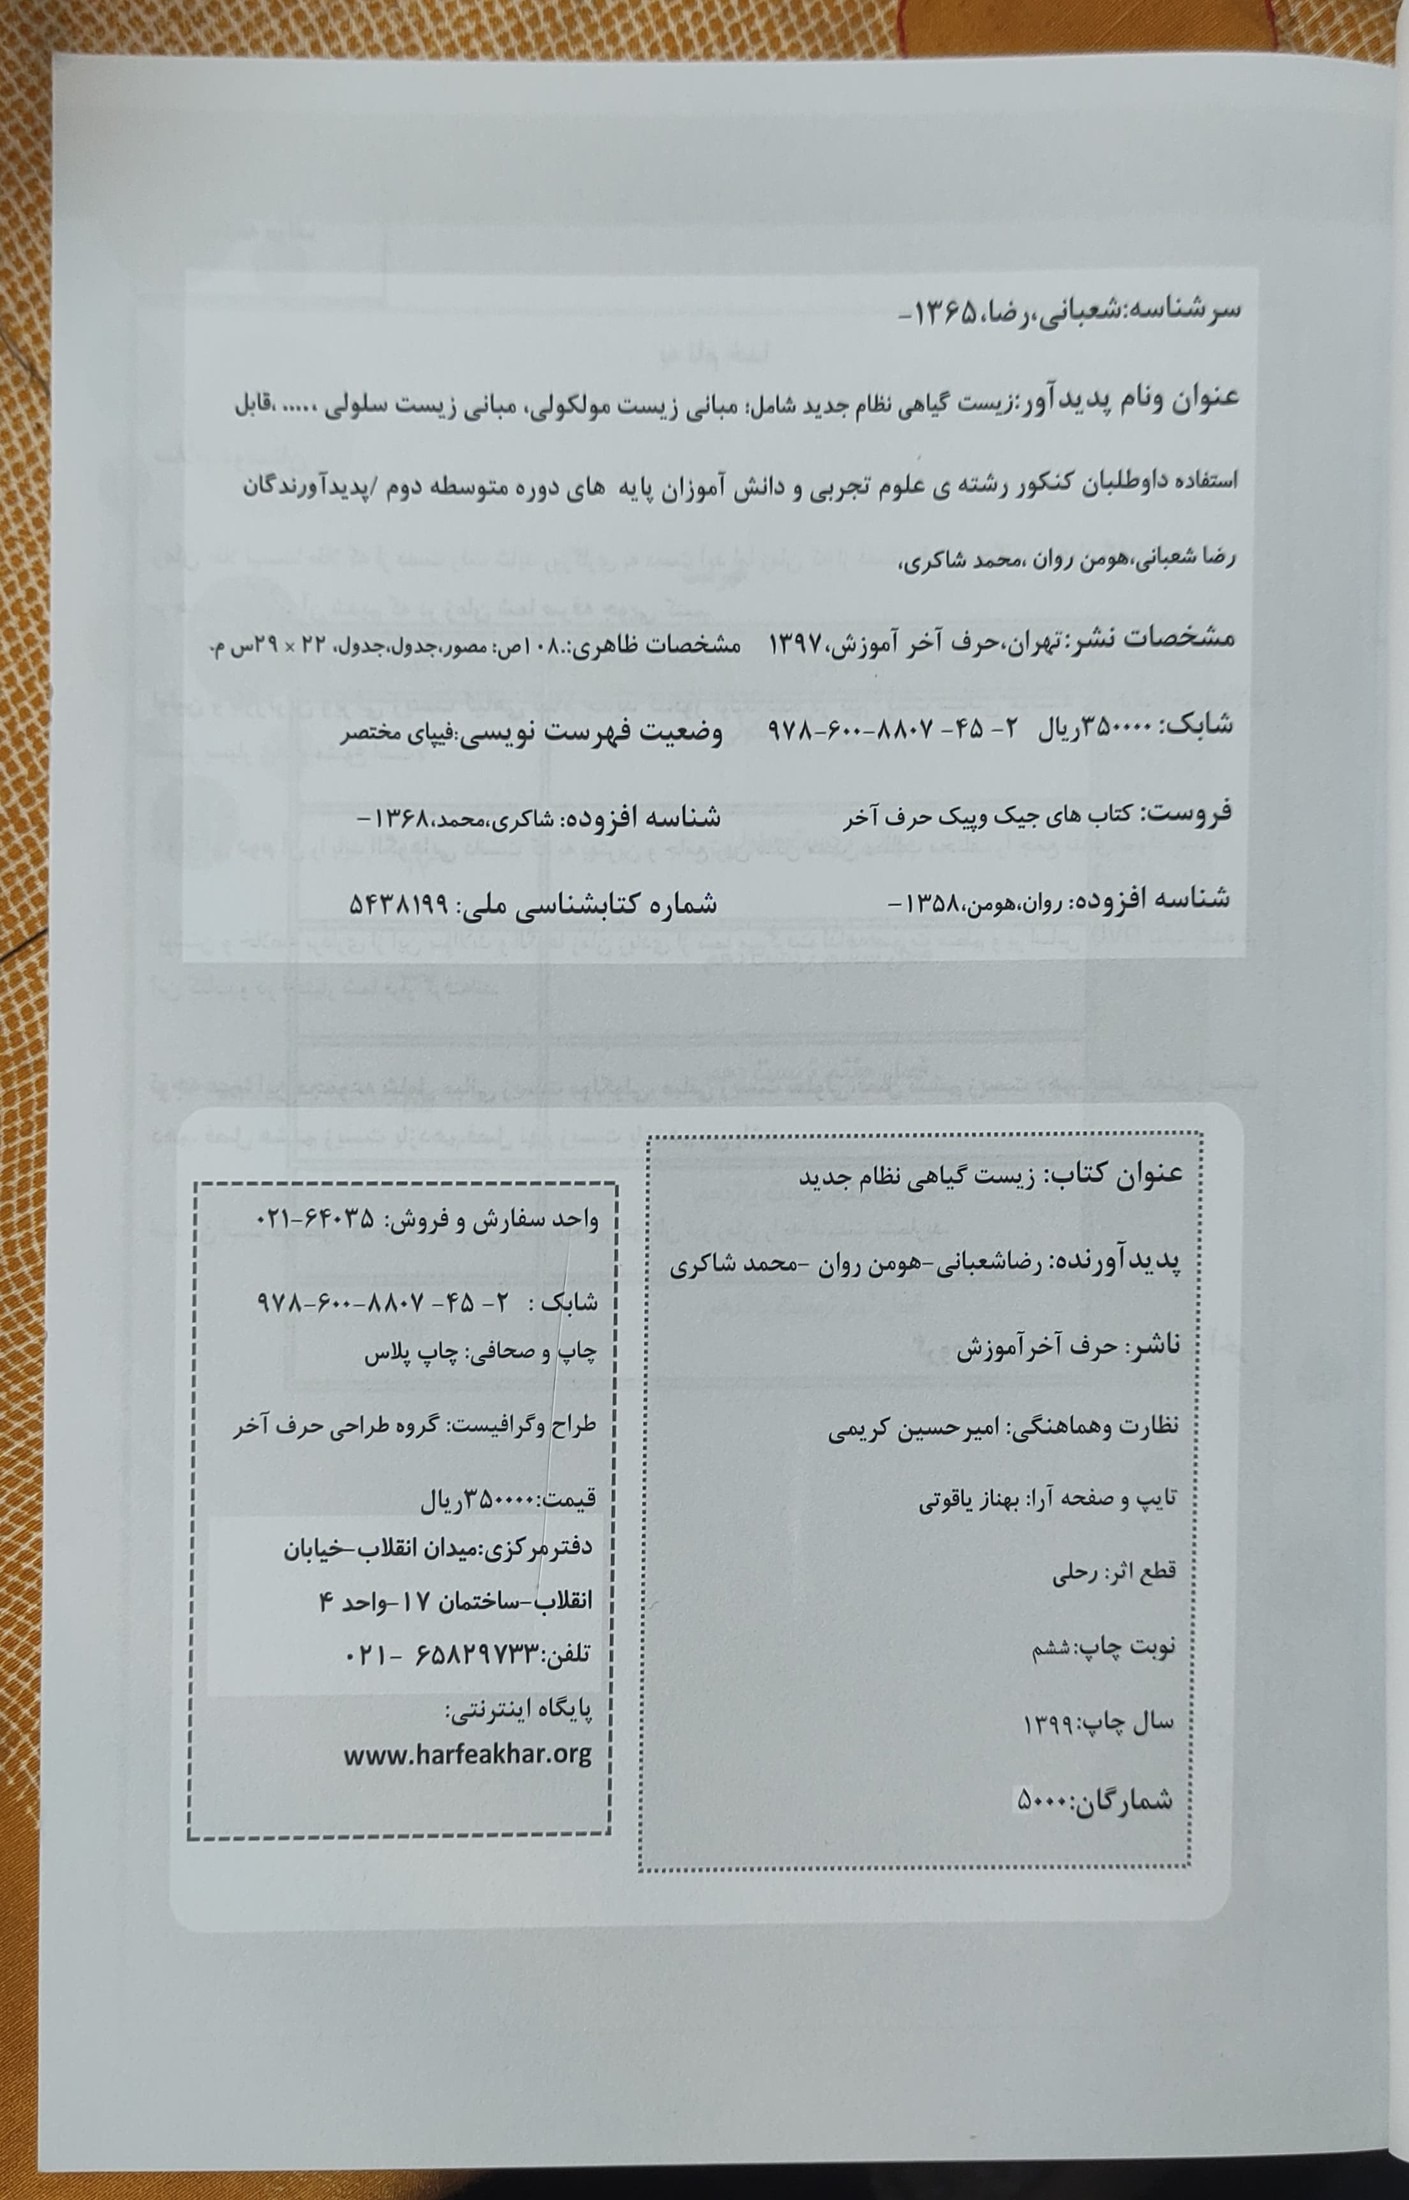 سرشناسه:شعبانی،رضا،۱۳۶۵-
عنوان ونام پدیدآور:زیست گیاهی نظام جدید شامل: مبانی زیست مولکولی، مبانی زیست سلولی ،.....،قابل
استفاده داوطلبان کنکور رشته ی علوم تجربی و دانش آموزان پایه های دوره متوسطه دوم /پدیدآورندگان
رضا شعبانی،هومن روان ،محمد شاکری،
مشخصات نشر:تهران،حرف آخر آموزش،۱۳۹۷ مشخصات ظاهری:.۱۰۸ص: مصور،جدول،جدول، ۲۲ × ۲۹س م.
شابک: ۳۵۰۰۰۰ریال ۲- ۴۵- ۸۸۰۷-۶۰۰-۹۷۸ وضعیت فهرست نویسی:فیپای مختصر
فروست: کتاب های جیک وپیک حرف آخر شناسه افزوده: شاکری،محمد،۱۳۶۸-
شناسه افزوده: روان،هومن،۱۳۵۸- شماره کتابشناسی ملی: ۵۴۳۸۱۹۹
عنوان کتاب: زیست گیاهی نظام جدید
پدیدآورنده: رضاشعبانی-هومن روان -محمد شاکری
ناشر: حرف آخرآموزش
نظارت وهماهنگی: امیرحسین کریمی
تایپ و صفحه آرا: بهناز یاقوتی
قطع اثر: رحلی
نوبت چاپ:ششم
سال چاپ:۱۳۹۹
شمارگان:۵۰۰۰
واحد سفارش و فروش: ۶۴۰۳۵-۰۲۱
شابک : ۲- ۴۵- ۸۸۰۷-۶۰۰-۹۷۸
چاپ و صحافی: چاپ پلاس
طراح وگرافیست: گروه طراحی حرف آخر
قیمت:۳۵۰۰۰۰ریال
دفترمرکزی:میدان انقلاب-خیابان
انقلاب-ساختمان ۱۷-واحد ۴
تلفن:۶۵۸۲۹۷۳۳ -۰۲۱
پایگاه اینترنتی:
www.harfeakhar.org